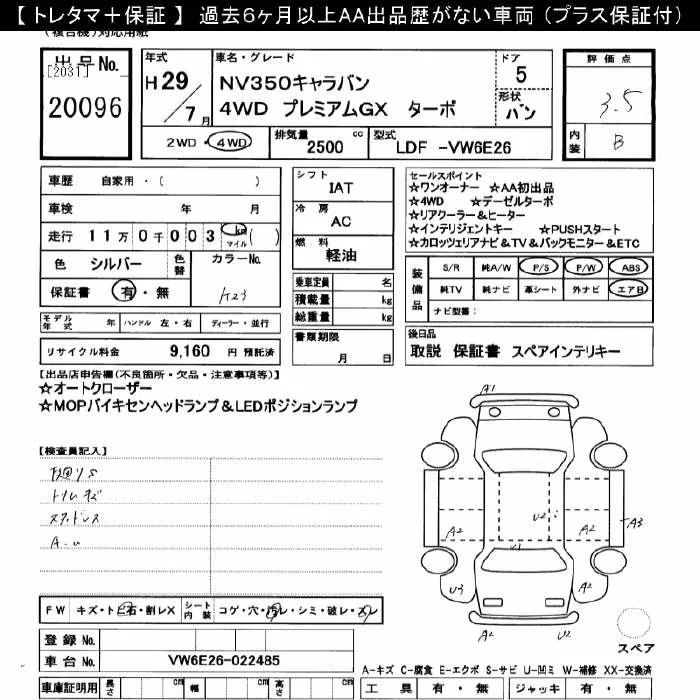 【 トレタマ＋保証 】 過去6ヶ月以上AA出品歴がない車両 (プラス保証付)
出品No.
[2031]
20096
年式
H 29
/ 7 月
車名・グレード
NV350キャラバン
4WD プレミアムGX ターボ
ドア
5
形状
バン
評価点
3.5
内装
B
2WD・4WD
排気量
2500 cc
型式
LDF -VW6E26
車歴 自家用・( )
車検 年 月
走行 11万0千003 km マイル ( )
色 シルバー
色替
カラーNo.
保証書 有・無
K23
モデル年式 年
ハンドル 左・右
ディーラー・並行
リサイクル料金 9,160 円 預託済
シフト
IAT
冷房
AC
燃料
軽油
乗車定員 名
積載量 kg
総重量 kg
書類期限
月 日
セールスポイント
☆ワンオーナー ☆AA初出品
☆4WD ☆デーゼルターボ
☆リアクーラー＆ヒーター
☆インテリジェントキー ☆PUSHスタート
☆カロッツェリアナビ＆TV＆バックモニター＆ETC
装備品
S/R 純A/W P/S P/W ABS
純TV 純ナビ 革シート 外ナビ エアB
ナビ型番:
後日品
取説 保証書 スペアインテリキー
【出品店申告欄(不良箇所・欠品・注意事項等)】
☆オートクローザー
☆MOPバイキセンヘッドランプ＆LEDポジションランプ
【検査員記入】
トリムキズ
スタッドレス
A1
A2
A2
U2
A3
U3
A2
A2
A2
U2
スペア
FW キズ・ト石・割レX
シート内装
コゲ・穴・汚レ・シミ・破レ・スレ
登録 No.
車台 No. VW6E26-022485
車庫証明用 長さ cm 幅 cm 高さ cm
A-キズ C-腐食 E-エクボ S-サビ U-凹ミ W-補修 XX-交換済
工具 有・無 ジャッキ 有・無